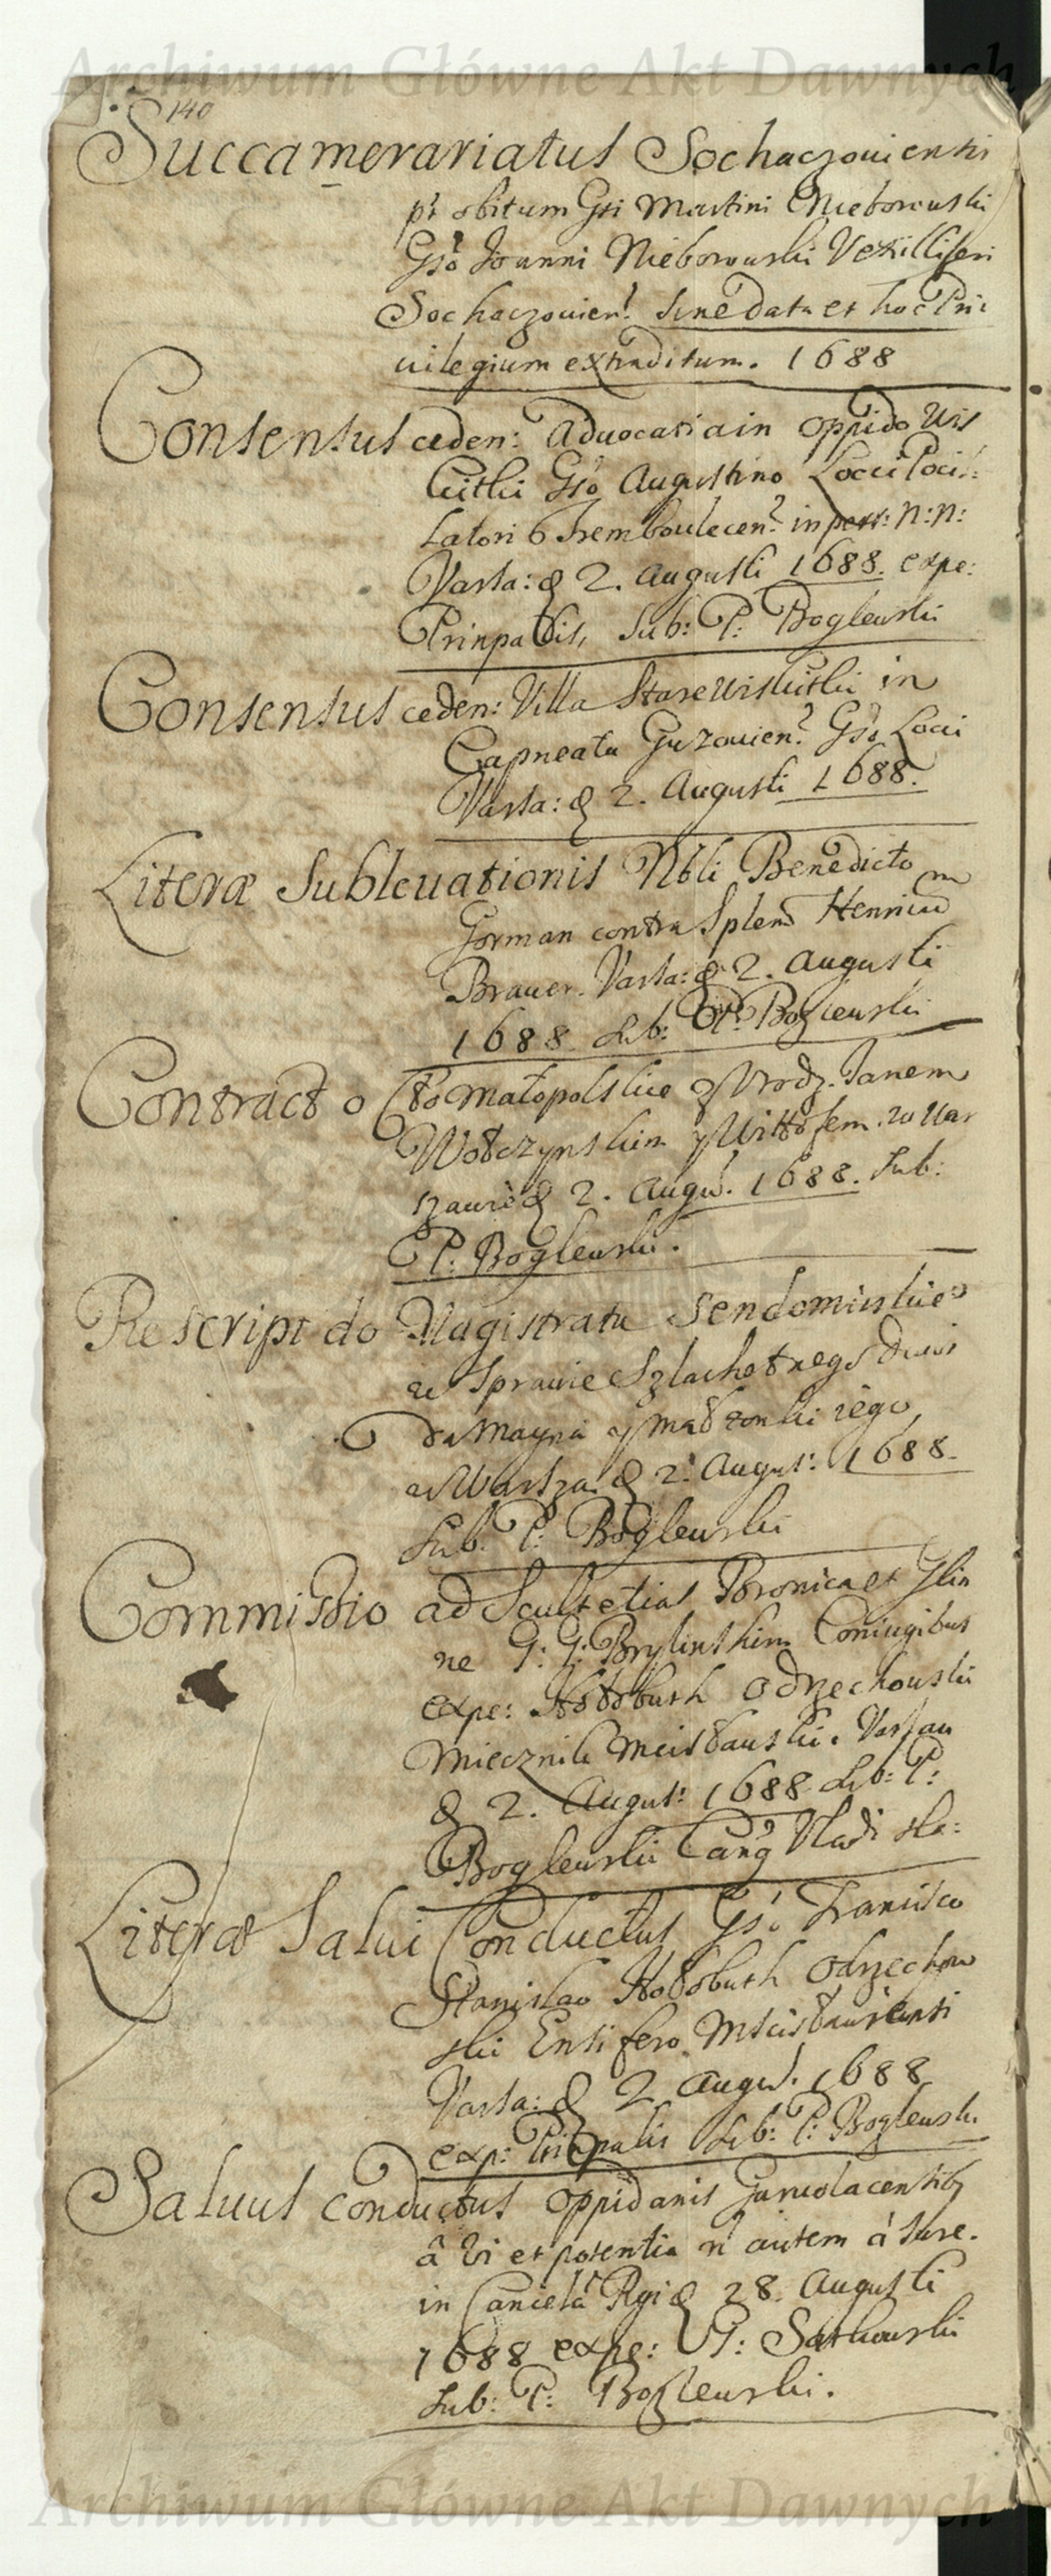 Archiwum Główne Akt Dawnych
140
Succamerariatus Sochaczouiensis
pt obitum Gsi Martini Nieborowski
Gso Joanni Nieborowski Vexillifero
Sochaczouien: sine data et hoc Pri
uilegium extraditum. 1688
Consensus ceden: Aduocatia in oppido Wis
kitki Gso Augustino Locci Pocil:
latori Trembowlecen: in pers: N: N:
Varsa: d 2. Augusti 1688. expe:
Prinpalis, Sub: P: Boglewski
Consensus ceden: Villa Stare Wiskitki in
Capneatu Guzouien: Gso Locci
Varsa: d 2. Augusti 1688.
Literæ Subleuationis Nbli Benedicto
Gorman contra Splend Henricum
Brauer. Varsa: d 2. Augusti
1688 Sub: P: Boglewski
Contract o Cło Małopolskie z Vrodz. Janem
Wołczynskim y Wittofem. w War
szawie d 2. Augus. 1688. Sub:
P: Boglewski.
Rescript do Magistratu Sendomirskiego
w Sprawie Szlachetnego Dawi
da Mayna y małzonki iego,
w Warsza: d 2. August: 1688.
Sub. P: Boglewski
Commissio ad Scultetias Bronica et Glin
ne G: G: Brylinskim Coniugibus
expe: Kłobush Odrzechowski
Miecznik Mscisławski. Varsau
d 2. August: 1688 Sub: P:
Boglewski Canc Vladisla:
Literæ Salui Conductus Gso Francisco
Stanislao Odrzechow
ski Ensifero Mscisławiensi
Varsa: d 2 Augus. 1688
exp: Prinpalis Sub: P: Boglewski
Saluus conductus oppidanis Garwolacensibq
â vi et potentia n autem á Iure.
in Cancela Rgi d 28. Augusti
1688 expe: P: Sarkowski
Sub: P: Boglewski.
Archiwum Główne Akt Dawnych